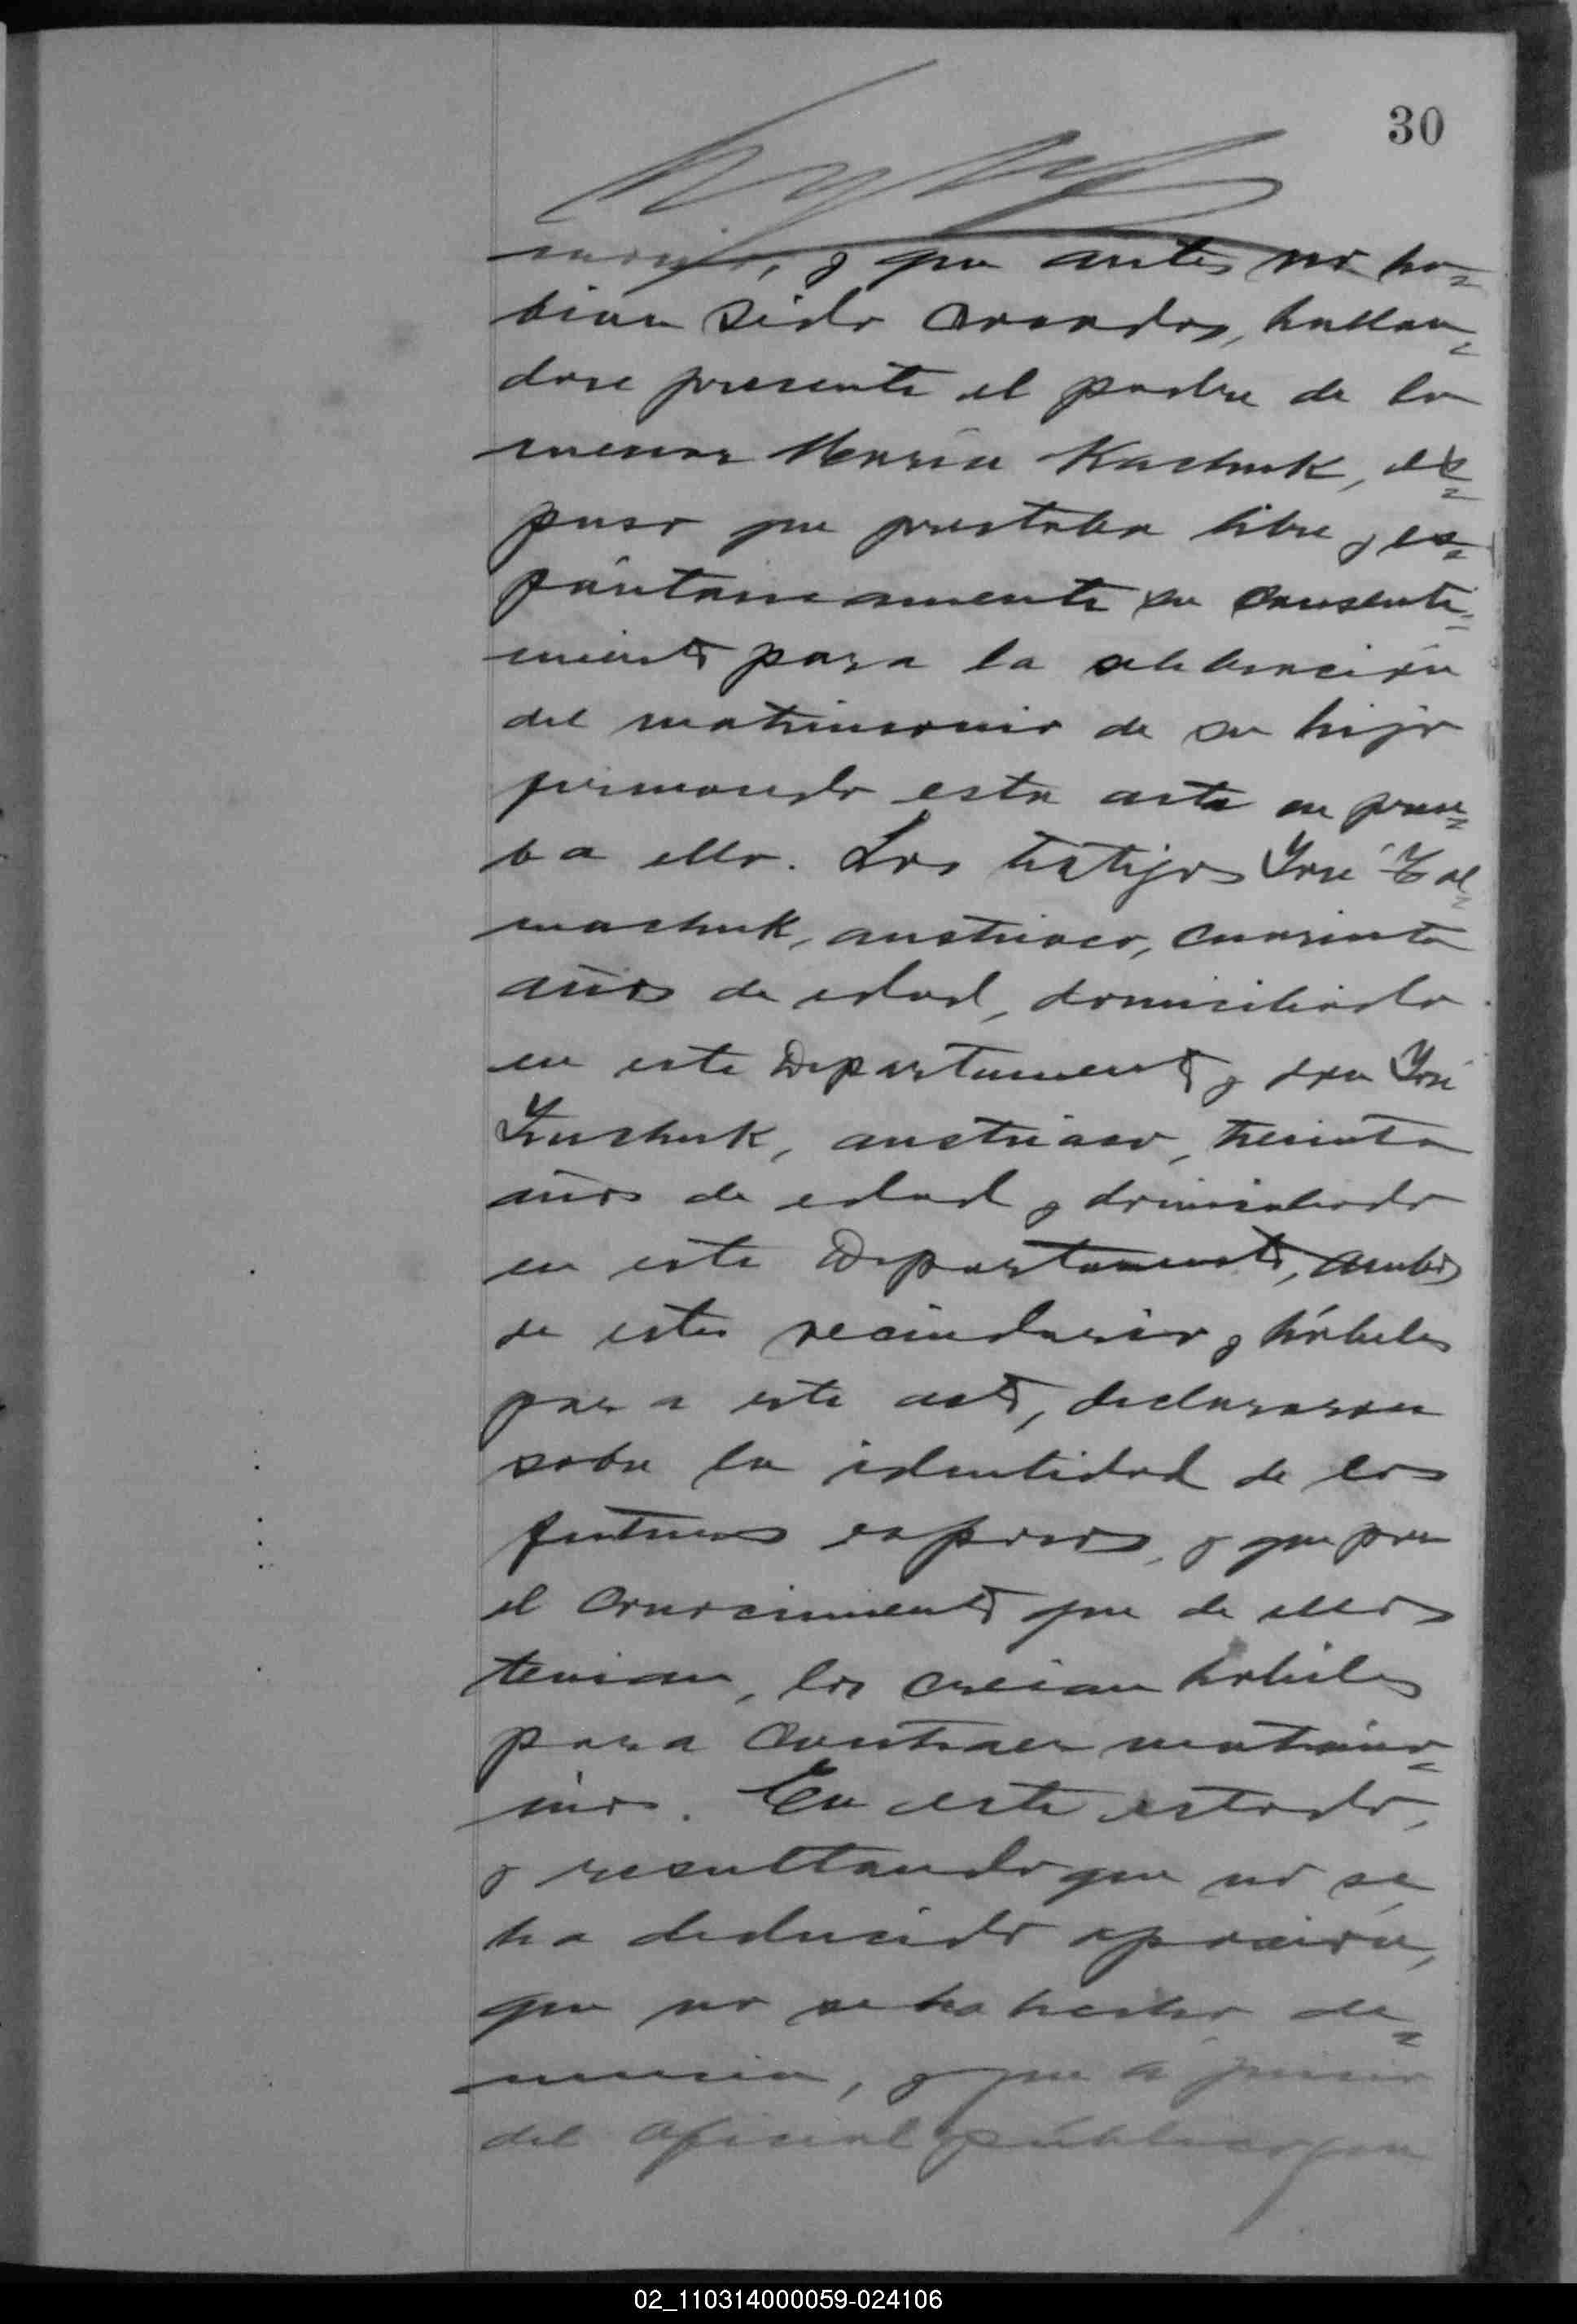 30
monio, y que antes no ha=
bian sido casados, hallan=
dose presente el padre de la
menor Maria Kachuk, ex=
puso que prestaba libre y es=
pontaneamente su consenti=
miento para la celebración
del matrimonio de su hija
firmando esta acta en prue=
ba ello. Los testigos José
machuk, austriaco, cuarenta
años de edad, domiciliado
en este Departamento y don José
austriaco, treinta
años de edad y domiciliado
en este Departamento, ambos
de este vecindario y hábiles
para este acto, declararon
sobre la identidad de los
futuros esposos, y que por
el conocimiento que de ellos
tenian, los creian habiles
para contraer matrimo=
nio. En este estado,
y resultando que no se
ha deducido oposición,
que no se ha hecho de=
nuncia, y que á juicio
del oficial público que
02_110314000059-024106